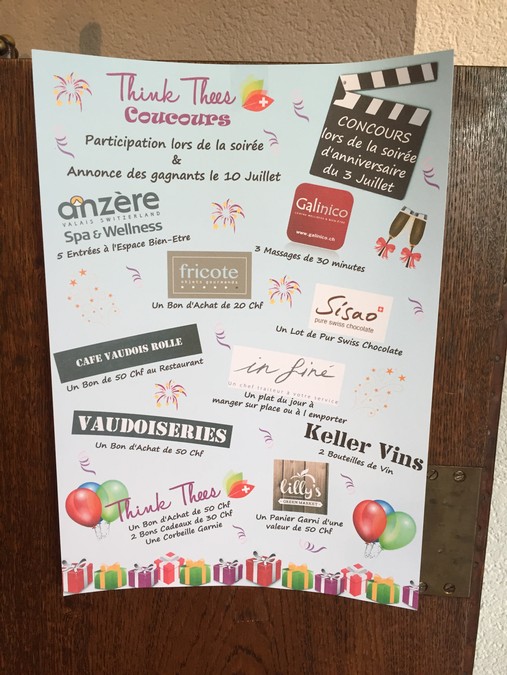 Think Thees
Coucours
Participation lors de la soirée
&
Annonce des gagnants le 10 Juillet
CONCOURS
lors de la soirée
d'anniversaire
du 3 Juillet
anzère
VALAIS SWITZERLAND
Spa & Wellness
5 Entrées à l'Espace Bien-Etre
Galinico
www.galinico.ch
3 Massages de 30 minutes
fricote
séjours gourmands
Un Bon d'Achat de 20 Chf
Sisao
pure swiss chocolate
Un Lot de Pur Swiss Chocolate
CAFE VAUDOIS ROLLE
Un Bon de 50 Chf au Restaurant
in finé
Un chef traiteur à votre service
Un plat du jour à
manger sur place ou à l emporter
VAUDOISERIES
Un Bon d'Achat de 50 Chf
Keller Vins
2 Bouteilles de Vin
Think Thees
Un Bon d'Achat de 50 Chf
2 Bons Cadeaux de 30 Chf
Une Corbeille Garnie
lilly's
GREEN MARKET
Un Panier Garni d'une
valeur de 50 Chf